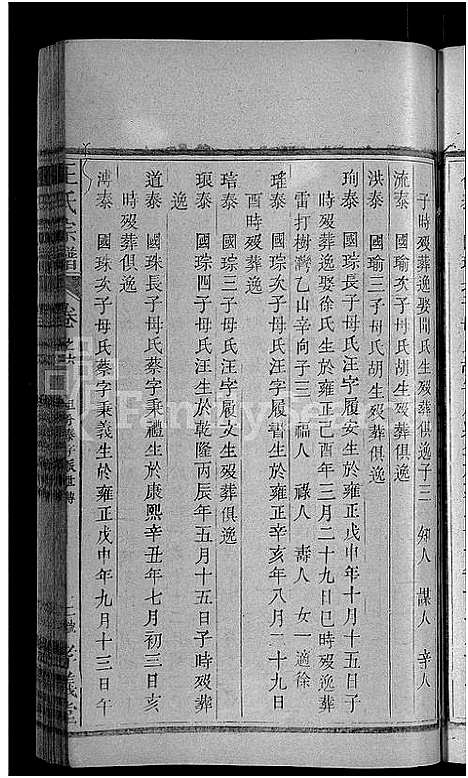 子時殁葬逸娶閔氏生殁葬俱逸子三 知人 謀人 辛人
流泰 國瑜次子母氏胡生殁葬俱逸
洪泰 國瑜三子母氏胡生殁葬俱逸
珣泰 國琮長子母氏汪字履安生於雍正戊申年十月十五日子
時殁葬逸娶徐氏生於雍正己酉年三月二十九日巳時殁逸葬
雷打樹灣乙山辛向子三 福人 祿人 壽人 女一適徐
瑤泰 國琮次子母氏汪字履智生於雍正辛亥年八月二十九日
酉時殁葬逸
琣泰 國琮三子母氏汪字履文生殁葬俱逸
琅泰 國琮四子母氏汪生於乾隆丙辰年五月十五日子時殁葬
逸
道泰 國珠長子母氏蔡字秉禮生於康熙辛丑年七月初三日亥
時殁葬俱逸
溥泰 國珠次子母氏蔡字秉義生於雍正戊申年九月十三日午
王氏宗譜 卷之六